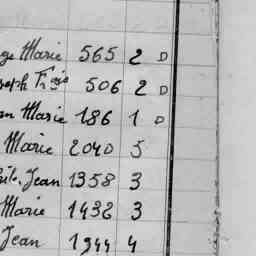 ge Marie 565 2 D
seph Fçois 506 2 D
an Marie 186 1 D
Marie 2040 5
ile. Jean 1358 3
Marie 1432 3
Jean 1944 4